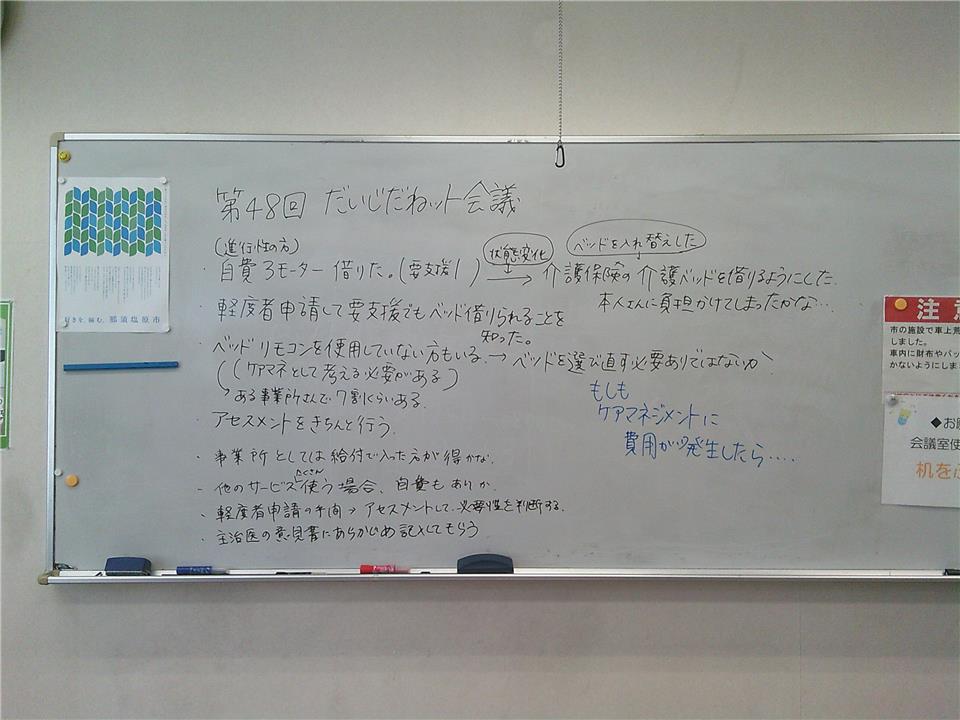 第48回 だいじだねット会議
(進行性の方)
・自費3モーター借りた。(要支援1) → 介護保険の介護ベッドを借りるようにした。
状態変化
ベッドを入れ替えした
本人さんに負担かけてしまったかな…
・軽度者申請して要支援でもベッド借りられることを
知った。
・ベッドリモコンを使用していない方もいる。→ ベッドを選び直す必要ありではないか
(ケアマネとして考える必要がある)
→ある事業所さんで7割くらいある。
・アセスメントをきちんと行う。
・事業所としては給付で入った方が得かな。
・他のサービスたくさん使う場合、自費もありか。
・軽度者申請の手間→アセスメントして、必要性を判断する。
・主治医の意見書にあらかじめ記入してもらう
もしも
ケアマネジメントに
費用が発生したら....
好きを、編む。那須塩原市
注意
市の施設で車上荒
しました。
車内に財布やバッ
かないようにしま
◆お願
会議室使
机をふ